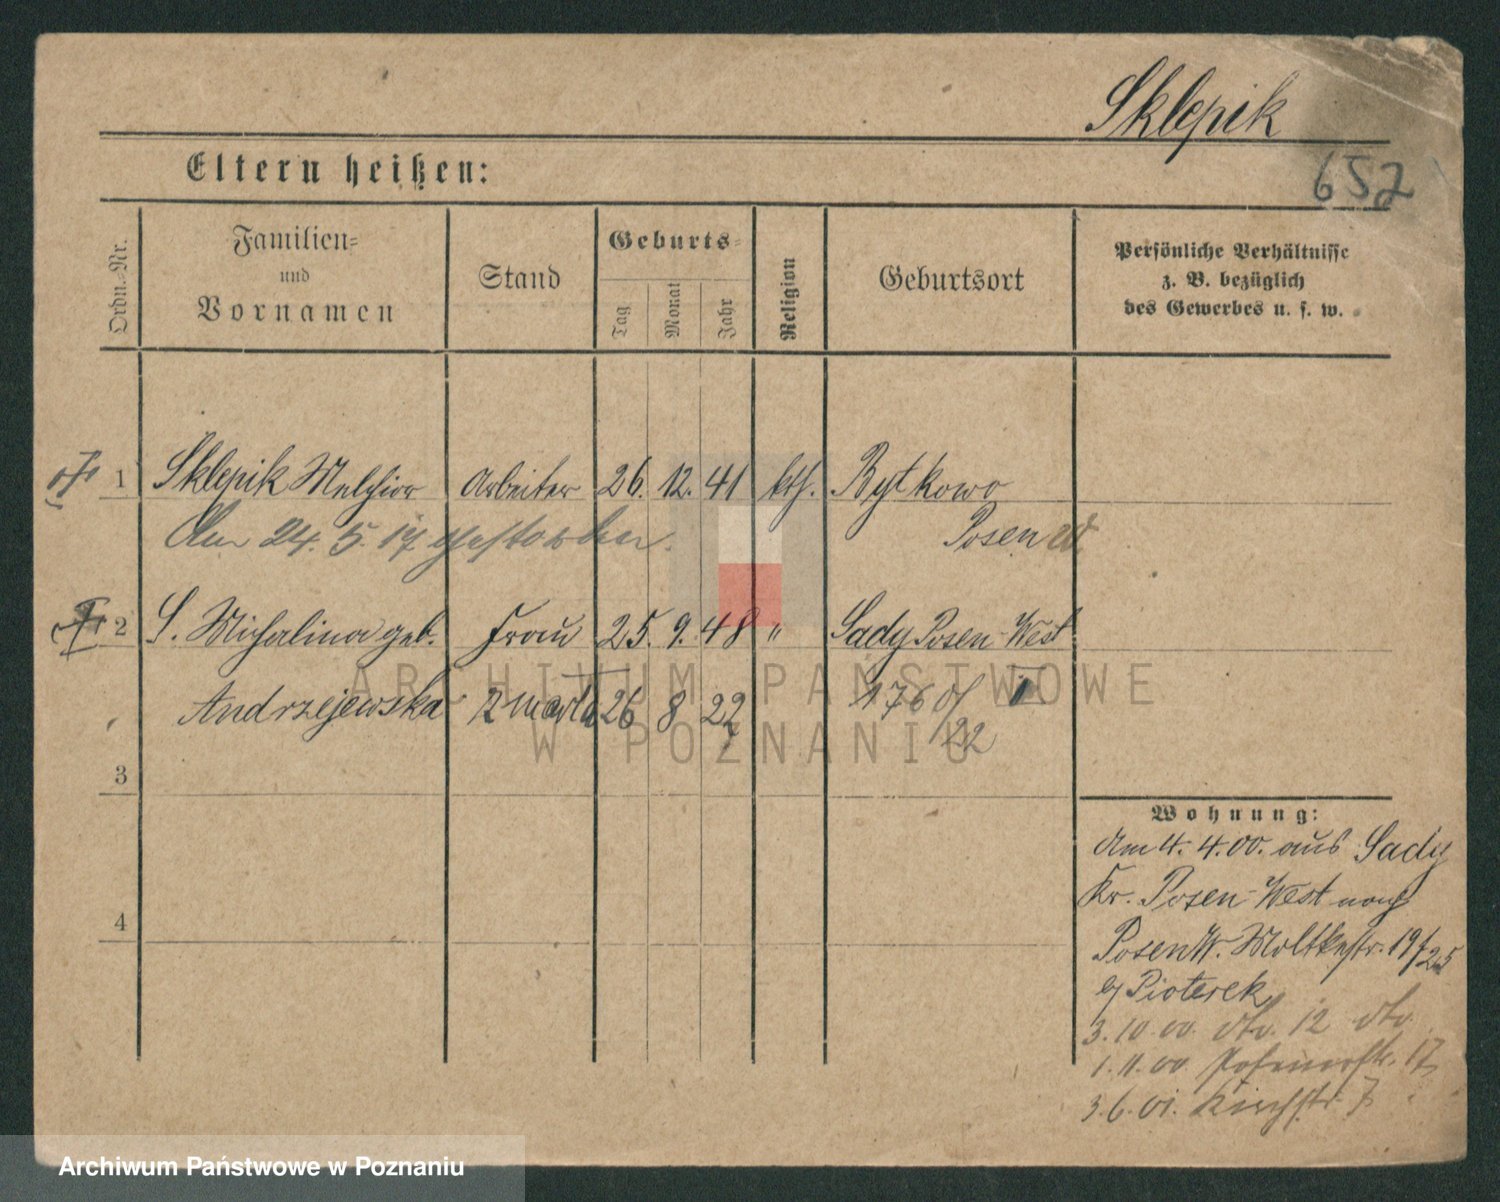 Sklepik
652
Eltern heißen:
Ordn.-Nr.
Familien-
und
Vornamen
Stand
Geburts-
Tag
Monat
Jahr
Religion
Geburtsort
Persönliche Verhältnisse
z. B. bezüglich
des Gewerbes u. s. w.
1 Sklepik Melchior Arbeiter 26. 12. 41 kth. Bytkowo
Am 24. 5. 17 gestorben. Posen
2 S. Michalina geb. Frau 25. 9. 48 " Sady Posen-West
Andrzejewska zmarła 26 8 22 1760/22
ARCHIWUM PAŃSTWOWE
W POZNANIU
3
4
Wohnung:
Am 4. 4. 00. aus Sady
Kr. Posen-West nach
Posen W. Moltkestr. 19/25
b/ Pioterek
3. 10 00 dto. 12 dto.
1. 11. 00 Posenerstr. 17
3. 6. 01. Kirchstr. 7
Archiwum Państwowe w Poznaniu